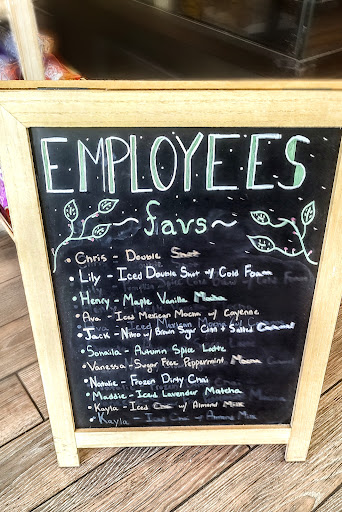 EMPLOYEES
~ favs ~
• Chris - Double Shot
• Lily - Iced Double Shot w/ Cold Foam
• Henry - Maple Vanilla Mocha
• Ava - Iced Mexican Mocha w/ Cayenne
• Jack - Nitro w/ Brown Sugar Cold & Salted Caramel
• Sonaila - Autumn Spice Latte
• Vanessa - Sugar Free Peppermint Mocha
• Natalie - Frozen Dirty Chai
• Maddie - Iced Lavender Matcha
• Kayla - Iced Chai w/ Almond Milk
• Kayla - Iced Chai w/ Almond Milk